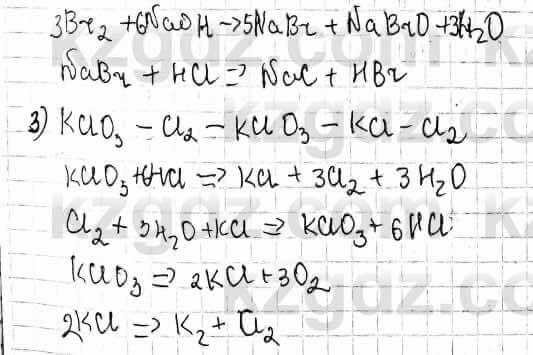 3Br₂ + 6NaOH → 5NaBr + NaBrO + 3H₂O
NaBr + HCl => NaCl + HBr
3) KClO₃ - Cl₂ - KClO₃ - KCl - Cl₂
KClO₃ + 6HCl => KCl + 3Cl₂ + 3H₂O
Cl₂ + 3H₂O + KCl => KClO₃ + 6HCl
KClO₃ => 2KCl + 3O₂
2KCl => K₂ + Cl₂